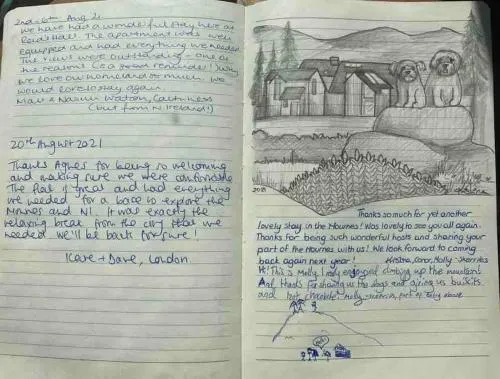 2nd - 6th Aug 21
We have had a wonderful stay here at
The apartment was well
equipped and had everything we needed.
The views were outstanding - one of
the reasons (as a great reminder!) why
we love our homeland so much. We
would love to stay again.
Watson, Caithness
(but from N. Ireland!)
20th August 2021
Thanks Agnes for being so welcoming
and making sure we were comfortable.
The flat is great and had everything
we needed for a base to explore the
Mournes and NI. It was exactly the
relaxing break from the city that we
needed. We'll be back for sure!
Kate + Dave, London
2021
Thanks so much for yet another
lovely stay in the Mournes! Was lovely to see you all again.
Thanks for being such wonderful hosts and sharing your
part of the Mournes with us! We look forward to coming
back again next year! Conor, Molly
Hi! This is Molly I really enjoyed climbing up the mountains
And thanks for showing us the dogs and giving us buiscits
and hot chocolate. Molly